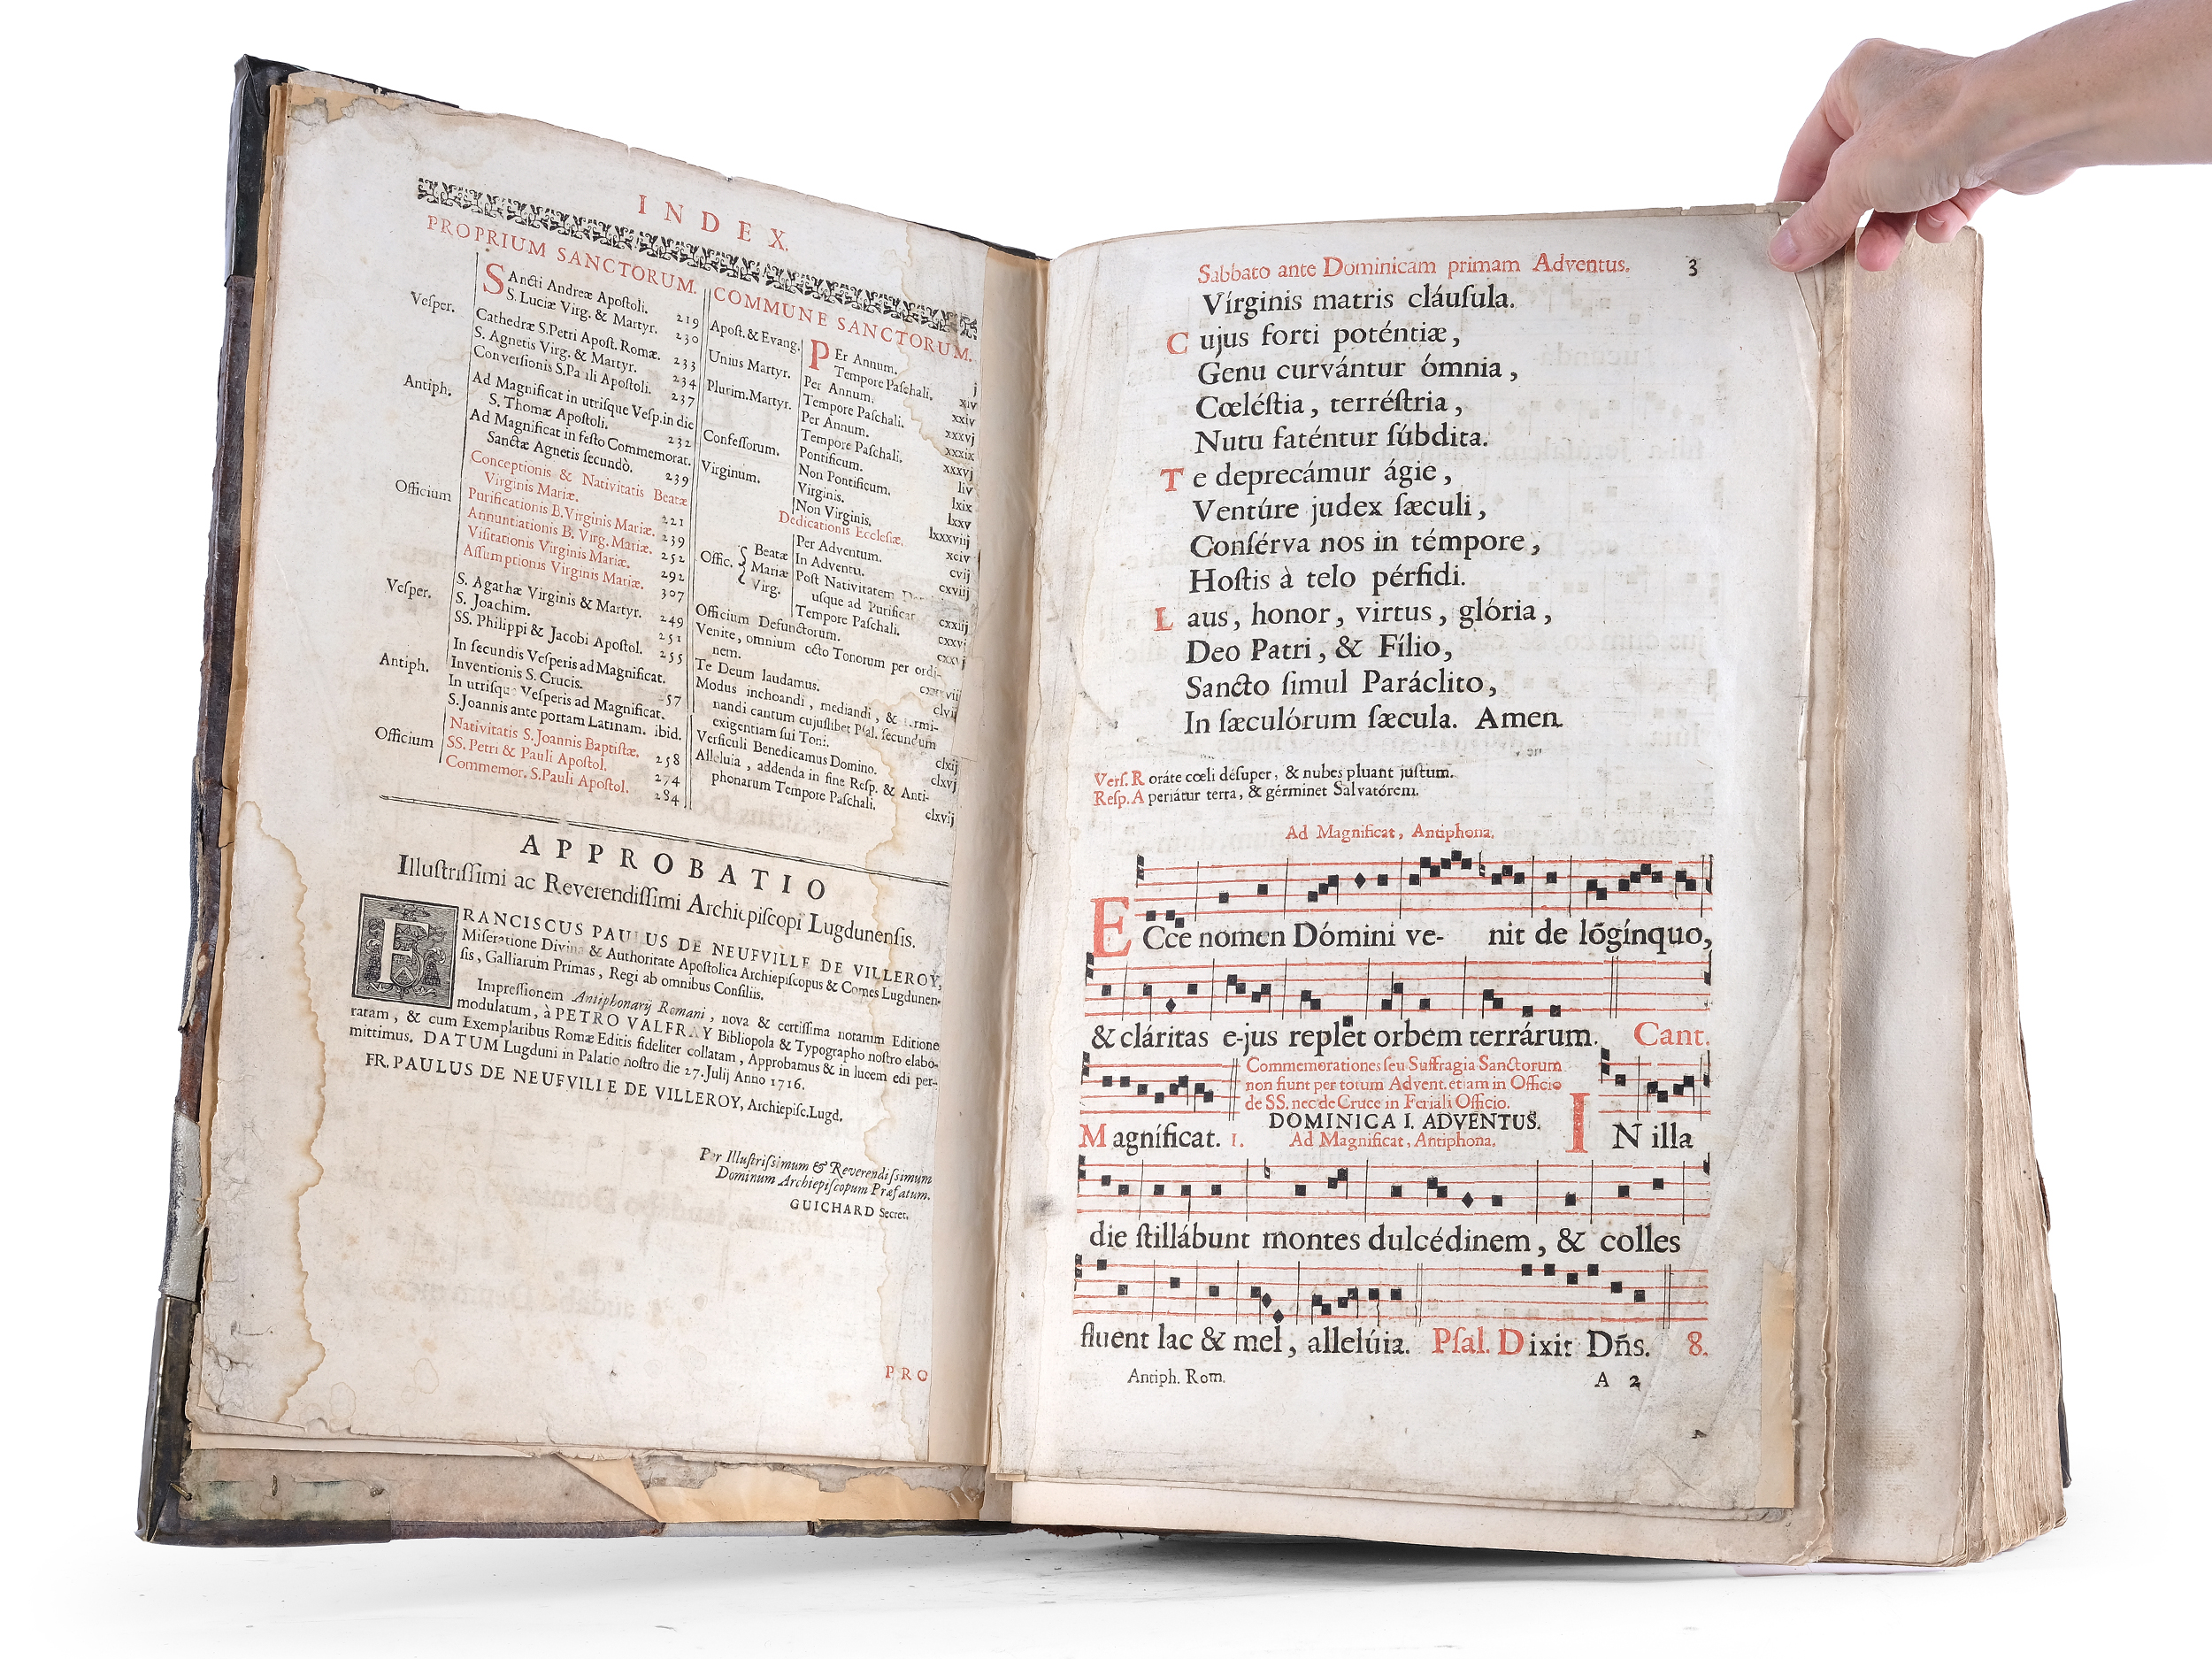 INDEX.
PROPRIUM SANCTORUM.
SAncti Andreæ Apoſtoli. 219
Veſper. S. Luciæ Virg. & Martyr. 230
Cathedræ S.Petri Apoſt. Romæ. 233
S. Agnetis Virg. & Martyr. 234
Converſionis S.Pauli Apoſtoli. 237
Antiph. Ad Magnificat in utriſque Veſp.in die
S. Thomæ Apoſtoli. 232
Ad Magnificat in feſto Commemorat.
Sanctæ Agnetis ſecundò. 239
Conceptionis & Nativitatis Beatæ
Virginis Mariæ. 221
Officium Purificationis B.Virginis Mariæ. 239
Annuntiationis B. Virg. Mariæ. 252
Viſitationis Virginis Mariæ. 292
Aſſumptionis Virginis Mariæ. 307
Veſper. S. Agathæ Virginis & Martyr. 249
S. Joachim. 251
SS. Philippi & Jacobi Apoſtol. 255
In ſecundis Veſperis ad Magnificat.
Antiph. Inventionis S. Crucis. 57
In utriſque Veſperis ad Magnificat.
S.Joannis ante portam Latinam. ibid.
Nativitatis S.Joannis Baptiſtæ. 258
Officium SS. Petri & Pauli Apoſtol. 274
Commemor. S.Pauli Apoſtol. 284
COMMUNE SANCTORUM.
Apoſt. & Evang. PEr Annum. j
Tempore Paſchali. xiv
Unius Martyr. Per Annum. xxiv
Tempore Paſchali. xxxvj
Plurim.Martyr. Per Annum. xxxix
Tempore Paſchali. xxxvj
Confeſſorum. Pontificum. liv
Non Pontificum. lxix
Virginum. Virginis. lxxv
Non Virginis. lxxxviij
Dedicationis Eccleſiæ. xciv
Offic. Beatæ Mariæ Virg. Per Adventum. cvij
In Adventu. cxviij
Poſt Nativitatem
uſque ad Purificat cxxiij
Tempore Paſchali. cxxvj
Officium Defunctorum.
Venite, omnium octo Tonorum per ordi-
nem.
Te Deum laudamus. clvij
Modus inchoandi, mediandi, & termi-
nandi cantum cujuſlibet Pſal. ſecundum
exigentiam ſui Toni. clxij
Verſiculi Benedicamus Domino. clxvj
Alleluia, addenda in fine Reſp. & Anti-
phonarum Tempore Paſchali. clxvij
APPROBATIO
Illuſtriſſimi ac Reverendiſſimi Archiepiſcopi Lugdunenſis.
FRANCISCUS PAULUS DE NEUFVILLE DE VILLEROY,
Miſeratione Divina & Authoritate Apoſtolica Archiepiſcopus & Comes Lugdunen-
ſis, Galliarum Primas, Regi ab omnibus Conſiliis.
Impreſſionem Antiphonarij Romani, nova & certiſſima notarum Editione
modulatum, à PETRO VALFRAY Bibliopola & Typographo noſtro elabo-
ratam, & cum Exemplaribus Romæ Editis fideliter collatam, Approbamus & in lucem edi per-
mittimus. DATUM Lugduni in Palatio noſtro die 27. Julij Anno 1716.
FR. PAULUS DE NEUFVILLE DE VILLEROY, Archiepiſc.Lugd.
Per Illuſtriſſimum & Reverendiſſimum
Dominum Archiepiſcopum Præfatum.
GUICHARD Secret.
PRO
Sabbato ante Dominicam primam Adventus. 3
Vírginis matris cláuſula.
Cujus forti poténtiæ,
Genu curvántur ómnia,
Cœléſtia, terréſtria,
Nutu faténtur ſúbdita.
Te deprecámur ágie,
Ventúre judex ſæculi,
Conſérva nos in témpore,
Hoſtis à telo pérfidi.
Laus, honor, virtus, glória,
Deo Patri, & Fílio,
Sancto ſimul Paráclito,
In ſæculórum ſæcula. Amen.
Verſ. Roráte cœli déſuper, & nubes pluant juſtum.
Reſp. Aperiátur terra, & gérminet Salvatórem.
Ad Magnificat, Antiphona.
ECce nomen Dómini ve- nit de lõgínquo,
& cláritas e-jus replet orbem terrárum. Cant.
Commemorationes ſeu Suffragia Sanctorum
non fiunt per totum Advent. etiam in Officio
de SS. nec de Cruce in Feriali Officio.
DOMINICA I. ADVENTUS.
Magníficat. 1. Ad Magnificat, Antiphona. IN illa
die ſtillábunt montes dulcédinem, & colles
fluent lac & mel, allelúia. Pſal. Dixit Dñs. 8.
Antiph. Rom. A 2